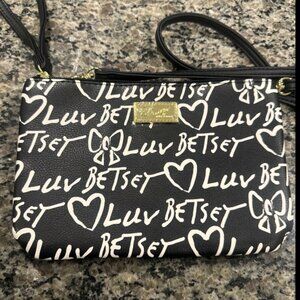 Luv BETSEY
Luv BETSEY
TSEY Luv BETSEY
Luv BETSEY
TSEY Luv BETSEY
Luv BETSEY
BETSEY Luv